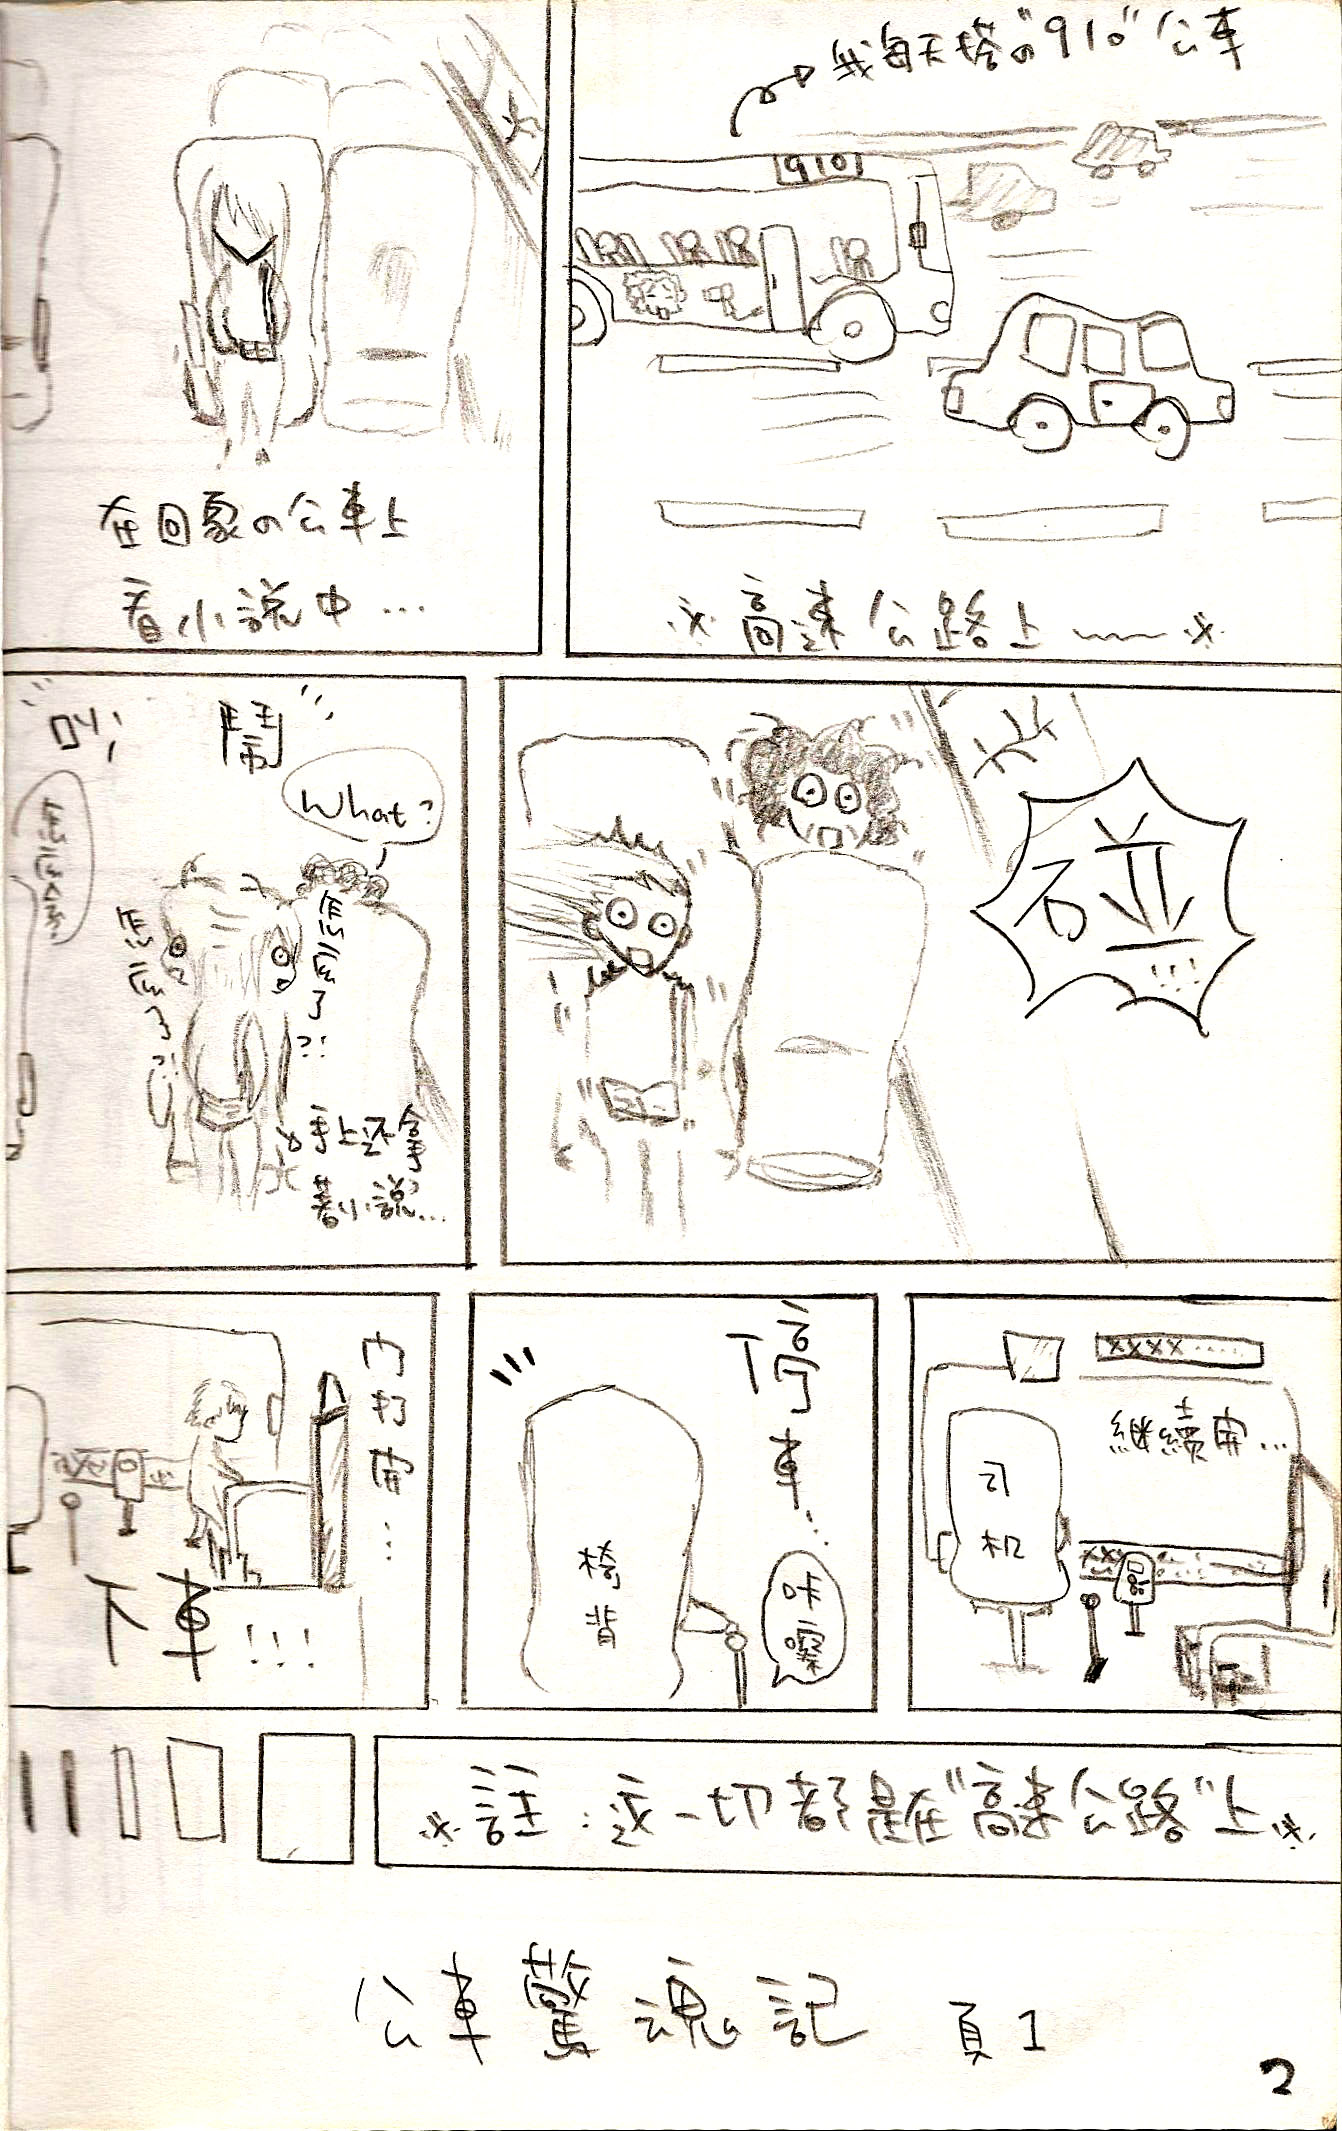 我每天搭の"910"公車
910
高速公路上
在回家の公車上
看小說中...
碰
!!!
鬧
叫
What?
怎么了?!
怎么了?!
手上还拿
著小說...
XXXX.....
継續開...
司
机
停車...
椅背
咔嚓
门打開...
下車!!!
註:这一切都是在"高速公路"上
公車驚魂記 頁1
2